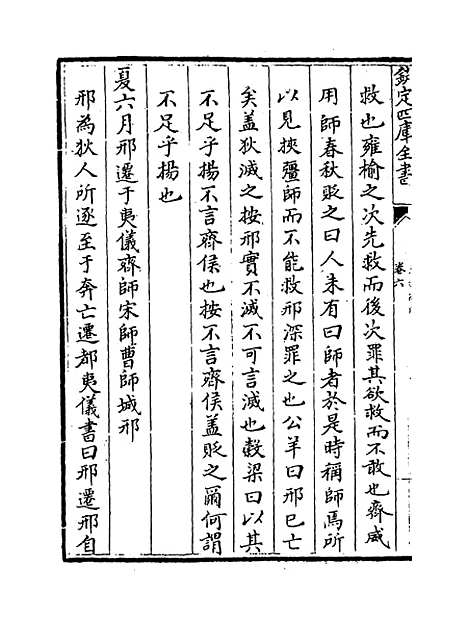 欽定四庫全書
卷六
救也雍榆之次先救而後次罪其欲救而不敢也齊威
用師春秋貶之曰人未有曰師者於是時稱師焉所
以見挾彊師而不能救邢深罪之也公羊曰邢已亡
矣盖狄滅之按邢實不滅不可言滅也穀梁曰以其
不足乎揚不言齊侯也按不言齊侯盖貶之爾何謂
不足乎揚也
夏六月邢遷于夷儀齊師宋師曹師城邢
邢為狄人所逐至于奔亡遷都夷儀書曰邢遷邢自